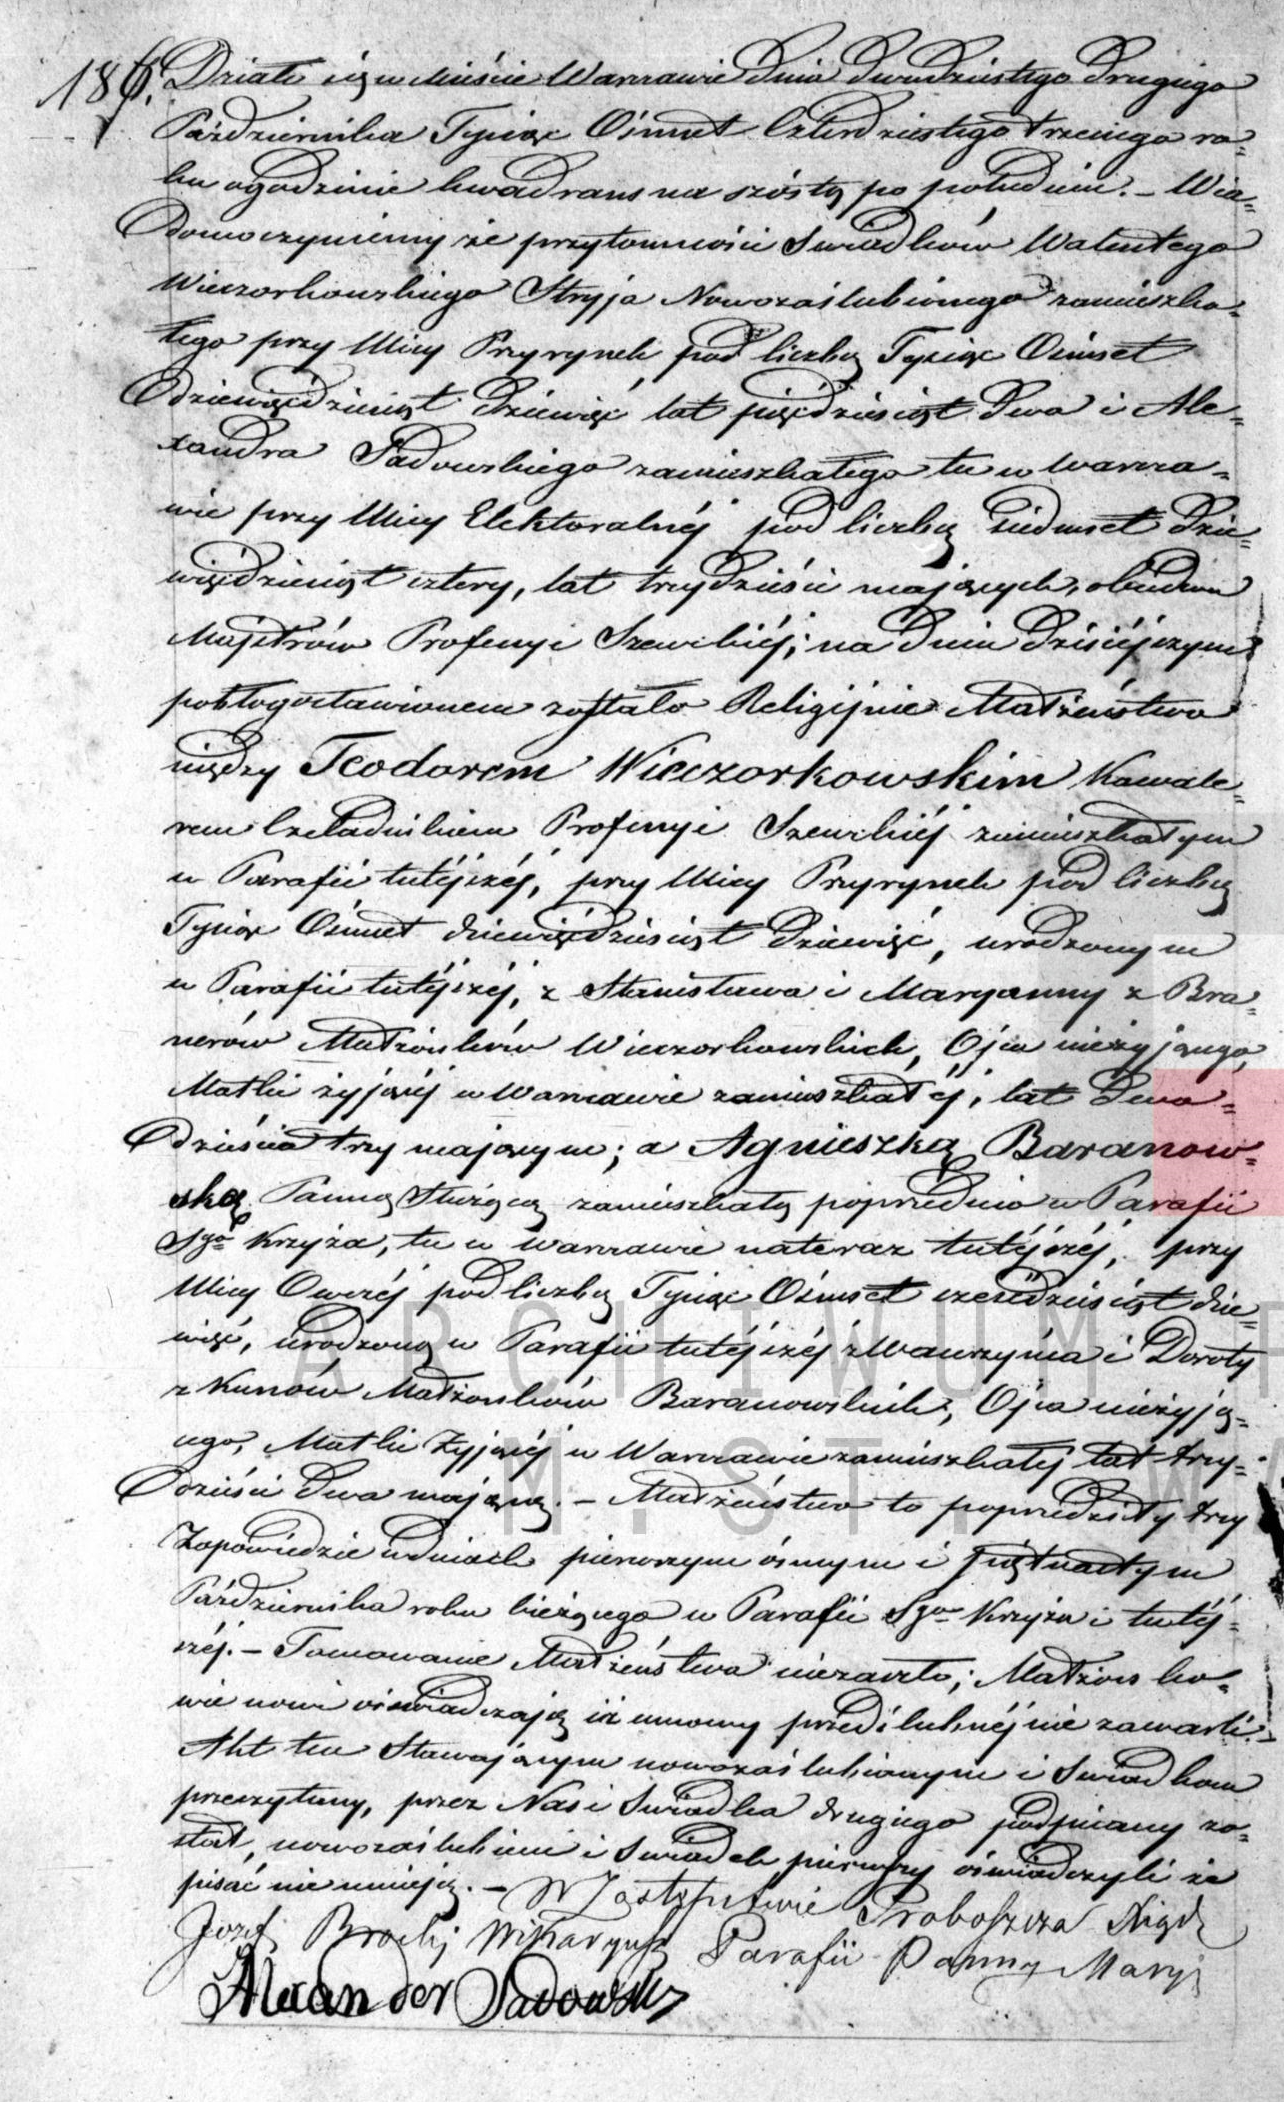 186. Działo się w Mieście Warszawie dnia dwudziestego drugiego
Października Tysiąc Ośmset Czterdziestego trzeciego ro=
ku o godzinie kwadrans na szóstą po południu. – Wia=
domo czyniemy że w przytomności Swiadków Walentego
Wieczorkowskiego Stryja Nowozaślubionego zamieszka=
łego przy Ulicy Przyrynek pod liczbą Tysiąc Ośmset
dziewięćdziesiąt dziewięć lat pięćdziesiąt dwa i Ale=
xandra Sadowskiego zamieszkałego tu w Warsza=
wie przy Ulicy Elektoralnéj pod liczbą siedmset dzie=
więdziesiąt cztery, lat trzydzieści mających, obudwu
Majstrów Professyi Szewckiéj; na dniu dzisiéjszym
pobłogosławionem zostało Religijnie Małżeństwo
między Teodorem Wieczorkowskim Kawale=
rem Czeladnikiem Professyi Szewckiéj zamieszkałym
w Parafii tutéjszéj, przy Ulicy Przyrynek pod liczbą
Tysiąc Ośmset dziewięćdziesiąt dziewięć, urodzonym
w Parafii tutéjszéj, z Stanisława i Maryanny z Bra=
nerów Małżonków Wieczorkowskich, Ojca nieżyjącego,
Matki żyjącéj w Warszawie zamieszkałéj, lat dwa=
dzieścia trzy mającym; a Agnieszką Baranow=
ską Panną Służącą zamieszkałą poprzednio w Parafii
Sgo Krzyża, tu w Warszawie na teraz tutéjszéj, przy
Ulicy Owczéj pod liczbą Tysiąc Ośmset sześćdziesiąt dzie=
więć, urodzoną w Parafii tutéjszéj z Wawrzyńca i Doroty
z Kunów Małżonków Baranowskich, Ojca nieżyją=
cego, Matki Żyjącéj w Warszawie zamieszkałéj lat trzy=
dzieści dwa mającą. – Małżeństwo to poprzedziły trzy
Zapowiedzie w dniach pierwszym ósmym i piętnastym
Października roku bieżącego w Parafii Sgo Krzyża i tutéj=
széj. – Tamowanie Małżeństwa niezaszło; Małżonko=
wie nowi oświadczają iż umowy przedślubnéj nie zawarli.
Akt ten Stawającym nowozaślubionym i Swiadkom
przeczytany, przez Nas i Swiadka drugiego podpisany zo=
stał, nowozaślubieni i Swiadek pierwszy oświadczyli że
pisać nie umieją. – W Zastępstwie Proboszcza
Jozef Wikaryusz Parafii Panny Maryi
Alexander Sadowski
ARCHIWUM P
M. ST. W